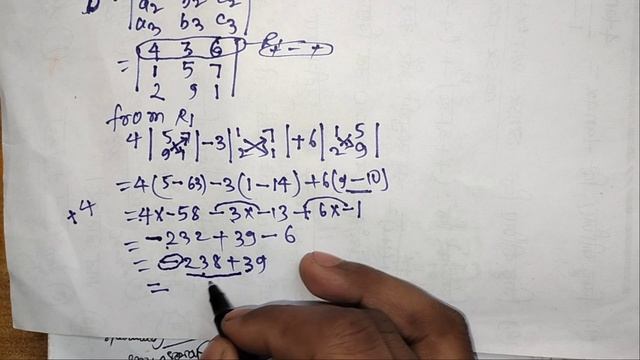 D
a₂ b₂ c₂
a₃ b₃ c₃
= | 4 3 6 | R₁ + − +
| 1 5 7 |
| 2 9 1 |
from R₁
4 | 5 7 9 1 | − 3 | 1 7 2 1 | + 6 | 1 5 2 9 |
= 4(5−63) − 3(1−14) + 6(9−10)
×4
= 4×−58 − 3×−13 + 6×−1
= −232 + 39 − 6
= −238 + 39
=